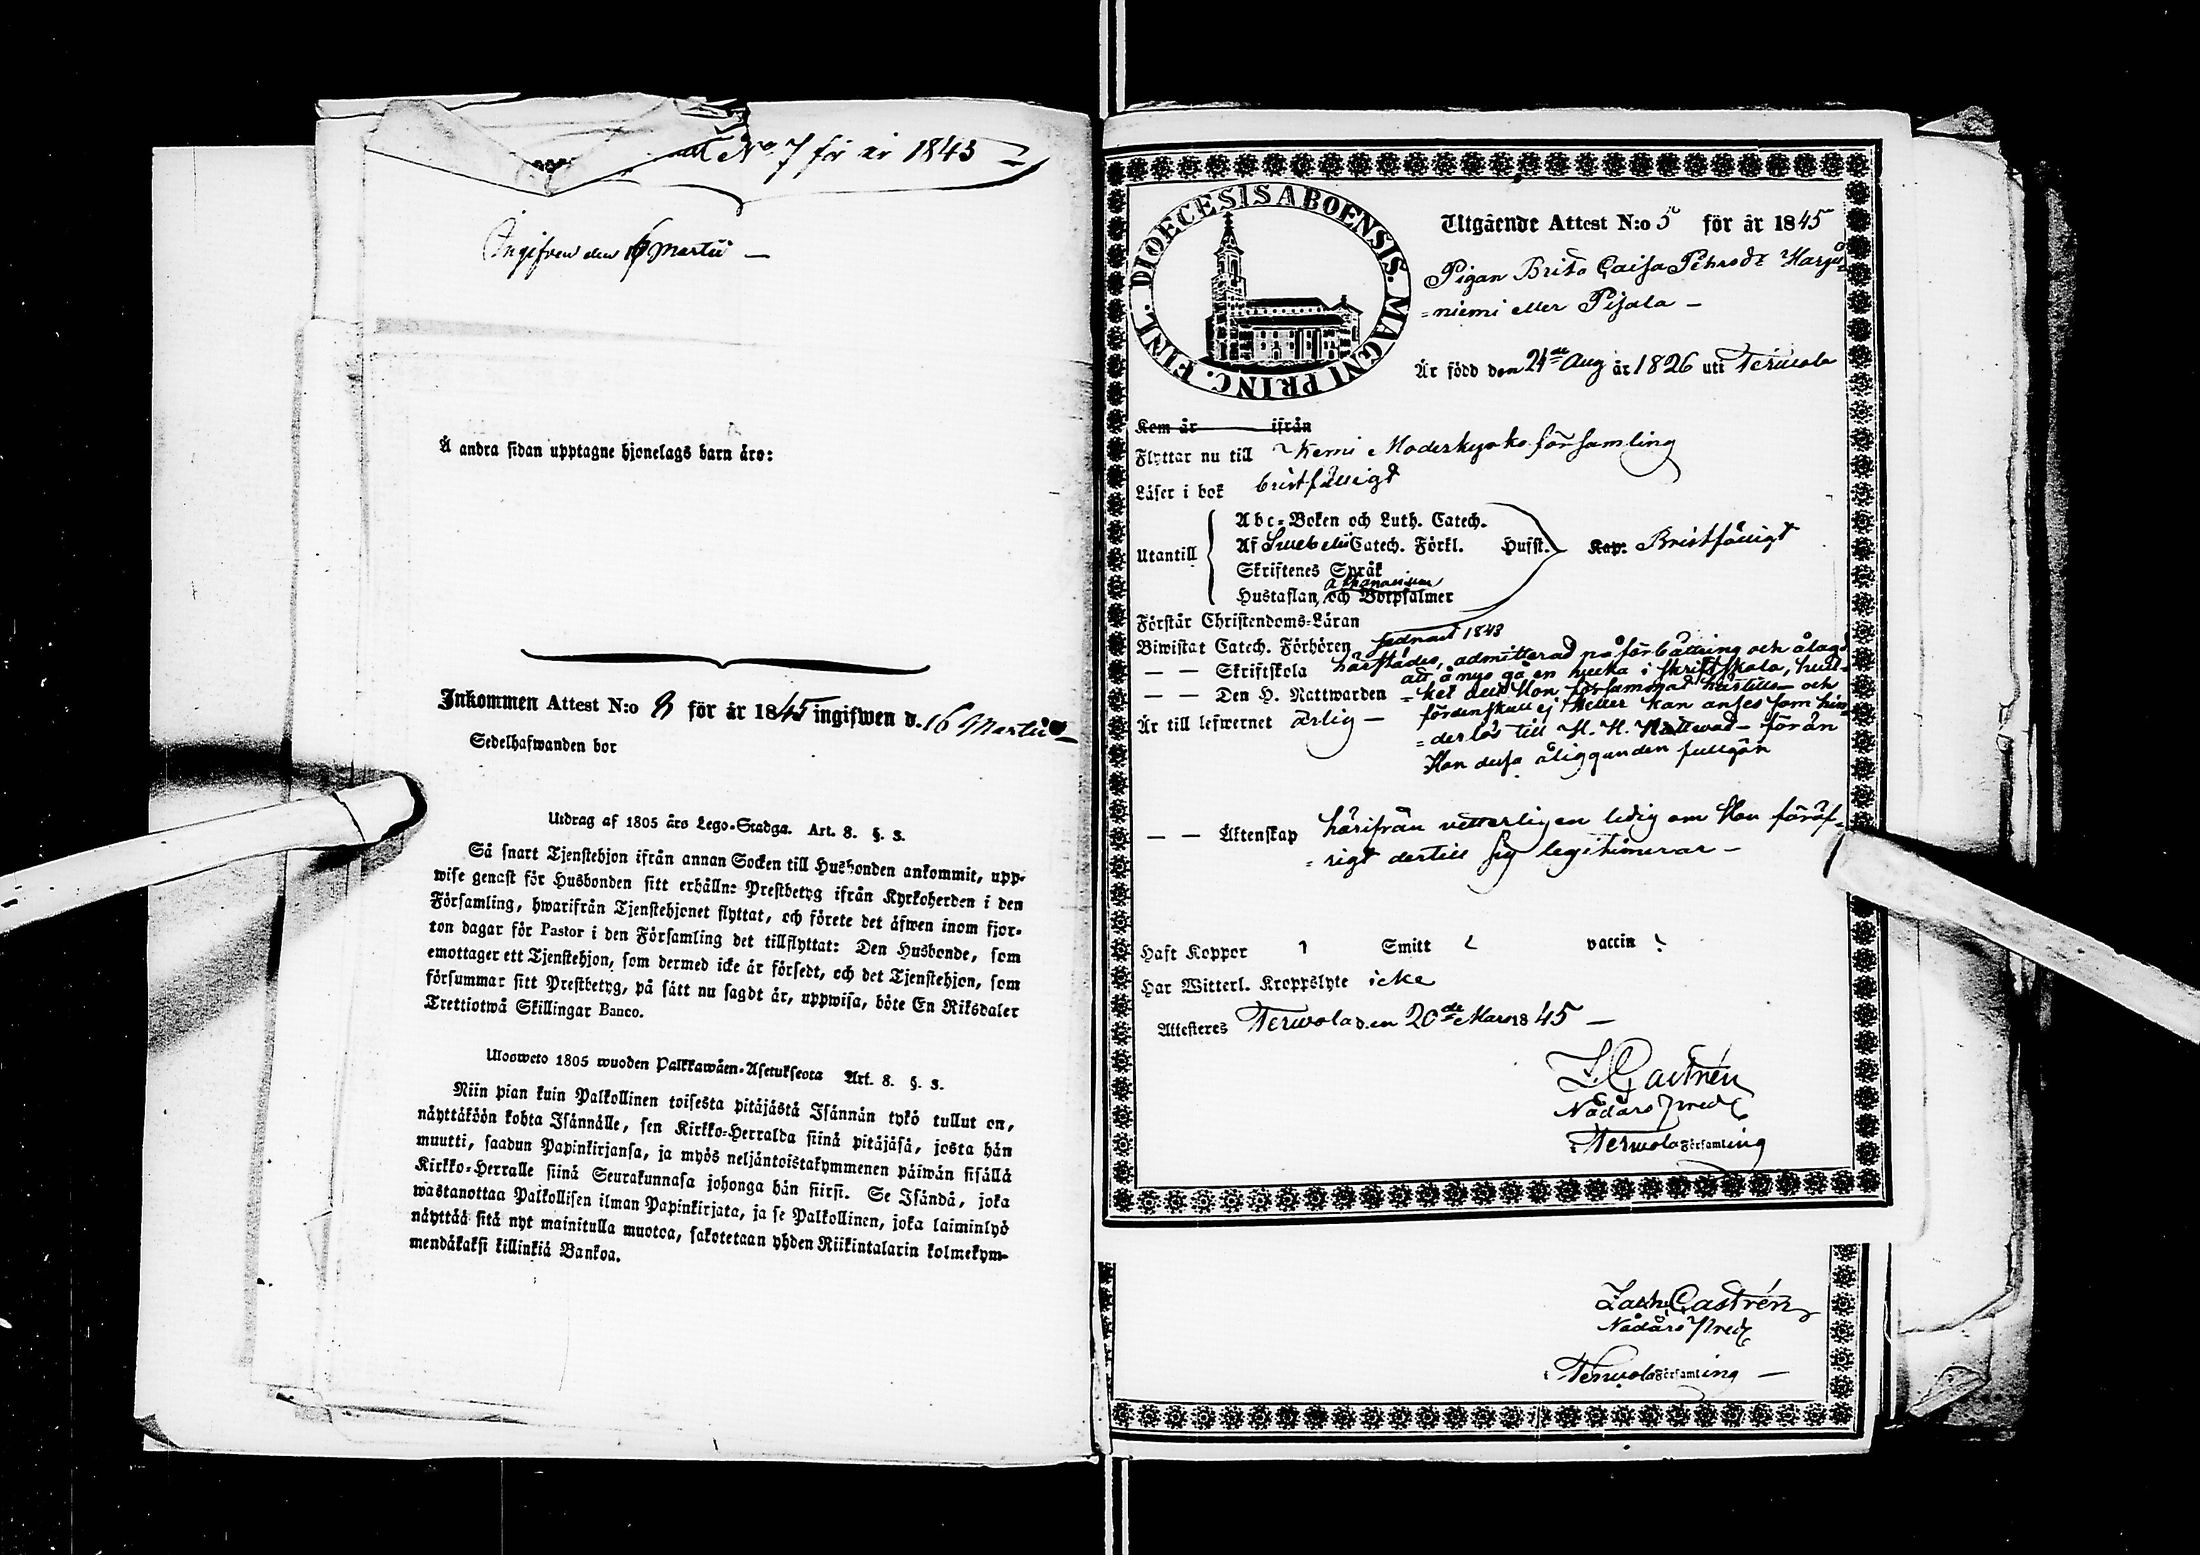 No. 7 för år 1845
Ingifven den 16 Martii —
Å andra sidan upptagne hjonelags barn äro:
Inkommen Attest N:o 8 för år 1845 ingifwen d. 16 Martii
Sedelhafwanden bor
Utdrag af 1805 års Lego-Stadga. Art. 8. §. 3.
Så snart Tjenstehjon ifrån annan Socken till Husbonden ankommit, upp-
wise genast för Husbonden sitt erhållne Prestbetyg ifrån Kyrkoherden i den
Församling, hwarifrån Tjenstehjonet flyttat, och förete det äfwen inom fjor-
ton dagar för Pastor i den Församling det tillflyttat: Den Husbonde, som
emottager ett Tjenstehjon, som dermed icke är försedt, och det Tjenstehjon, som
försummar sitt Prestbetyg, på sätt nu sagdt är, uppwisa, böte En Riksdaler
Trettiotwå Skillingar Banco.
Ulosweto 1805 wuoden Palkkawäen-Asetuksesta Art. 8. §. 3.
Niin pian kuin Palkollinen toisesta pitäjästä Isännän tykö tullut on,
näyttäköön kohta Isännälle, sen Kirkko-Herralda siinä pitäjäsä, josta hän
muutti, saadun Papinkirjansa, ja myös neljäntoistakymmenen päiwän sisällä
Kirkko-Herralle siinä Seurakunnasa johonga hän siirsi. Se Isändä, joka
wastanottaa Palkollisen ilman Papinkirjata, ja se Palkollinen, joka laiminlyö
näyttää sitä nyt mainitulla muotoa, sakotetaan yhden Riikintalarin kolmekym-
mendäkaksi killinkiä Bankoa.
DIOECESIS ABOENSIS. MAGNI PRINC. FINL.
Utgående Attest N:o 5 för år 1845
Pigan Brita Caisa Pehrsdr Harju
=niemi eller Pisala —
Är född den 24de Aug år 1826 uti Terwola
Kom år ifrån
Flyttar nu till Kemi Moderkyrko församling
Läser i bok bristfälligt
Utantill
Abc-Boken och Luth. Catech.
Af Swebelii Catech. Förkl. Hufst. Kap. Bristfälligt
Skriftenes Språk
Athanasium
Hustaflan, och Botpsalmer
Förstår Christendoms-Läran
Biwistat Catech. Förhören sednast 1843
— — Skriftskola härstädes, admitterad på förbättring och ålagd
att å nyo gå en vecka i skriftskola, hvil-
— — Den H. Nattwarden =ket dock Hon försummat härtills och
Är till lefwernet ärlig — fördenskull ej heller kan anses som hin-
=derlös till H. H. Nattward — förän
Hon dessa åligganden fullgör
— — Äktenskap härifrån vetterligen ledig om Hon föröf-
=rigt dertill sig legitimerar —
Haft Koppor ? Smitt ? vaccin ?
Har Witterl. Kroppslyte icke
Attesteres Terwola den 20de Mars 1845 —
Z Castrén
Nådårs Pred
i Terwola Församling
Zach. Castrén
Nådårs Pred
i Terwola Församling —